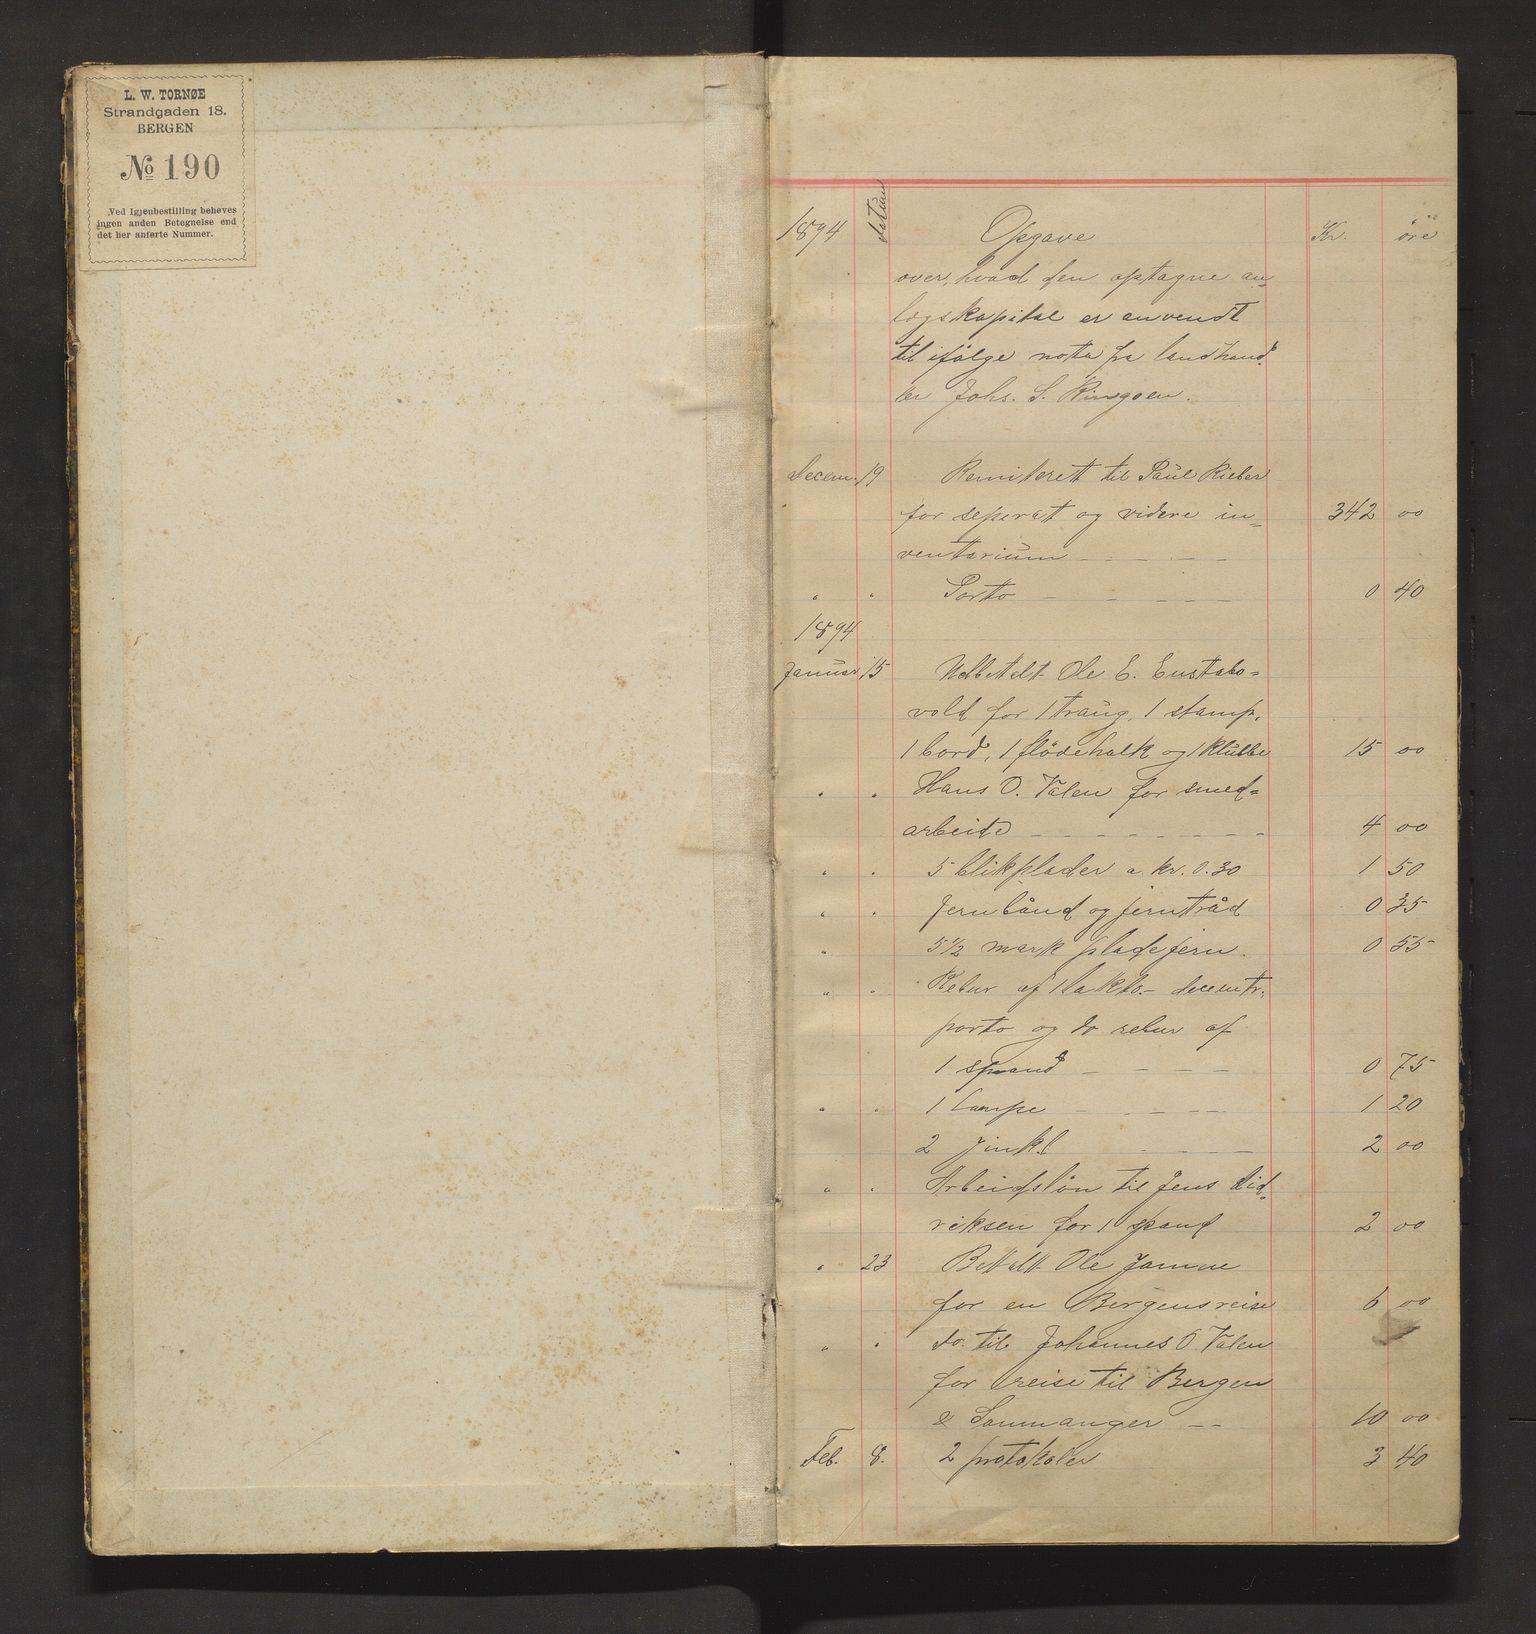 L. W. TORNØE
Strandgaden 18.
BERGEN
No 190
Ved Igjenbestilling behøves
ingen anden Betegnelse end
det her anførte Nummer.
1894 datum Opgave Kr. öre
over, hvad den optagne an-
lægskapital er anvendt
til ifölge notta fra landhand-
ler Johs. S. Ringöen.
Decem. 19 Remiterett til Paul Rieber
for seperat og videre in- 342 00
ventarium
" " Porto 0 40
1894
Januar 15 Udbetalt Ole E. Eustabo-
vold for 1 traug, 1 stamp,
1 bord, 1 flödehalk og 1 klubbe 15 00
" " Hans O. Valen for smed-
arbeide 4 00
" " 5 blikplader a. kr. 0.30 1 50
" " Jernbånd og jerntråd 0 35
" 5 1/2 mark pladejern. 0 55
" " Retur af 1 lakto- decemtr.
porto og do retur af
1 spand 0 75
" " 1 lampe 1 20
2 2 00
" " Arbeidslön til Jens Did-
riksen for 1 spand 2 00
" 23 Betalt Ole Jamne
for en Bergensreise 6 00
" " do. til Johannes O. Valen
for reise til Bergen
& Sammanger 10 00
Feb. 8. 2 protokoler 3 40